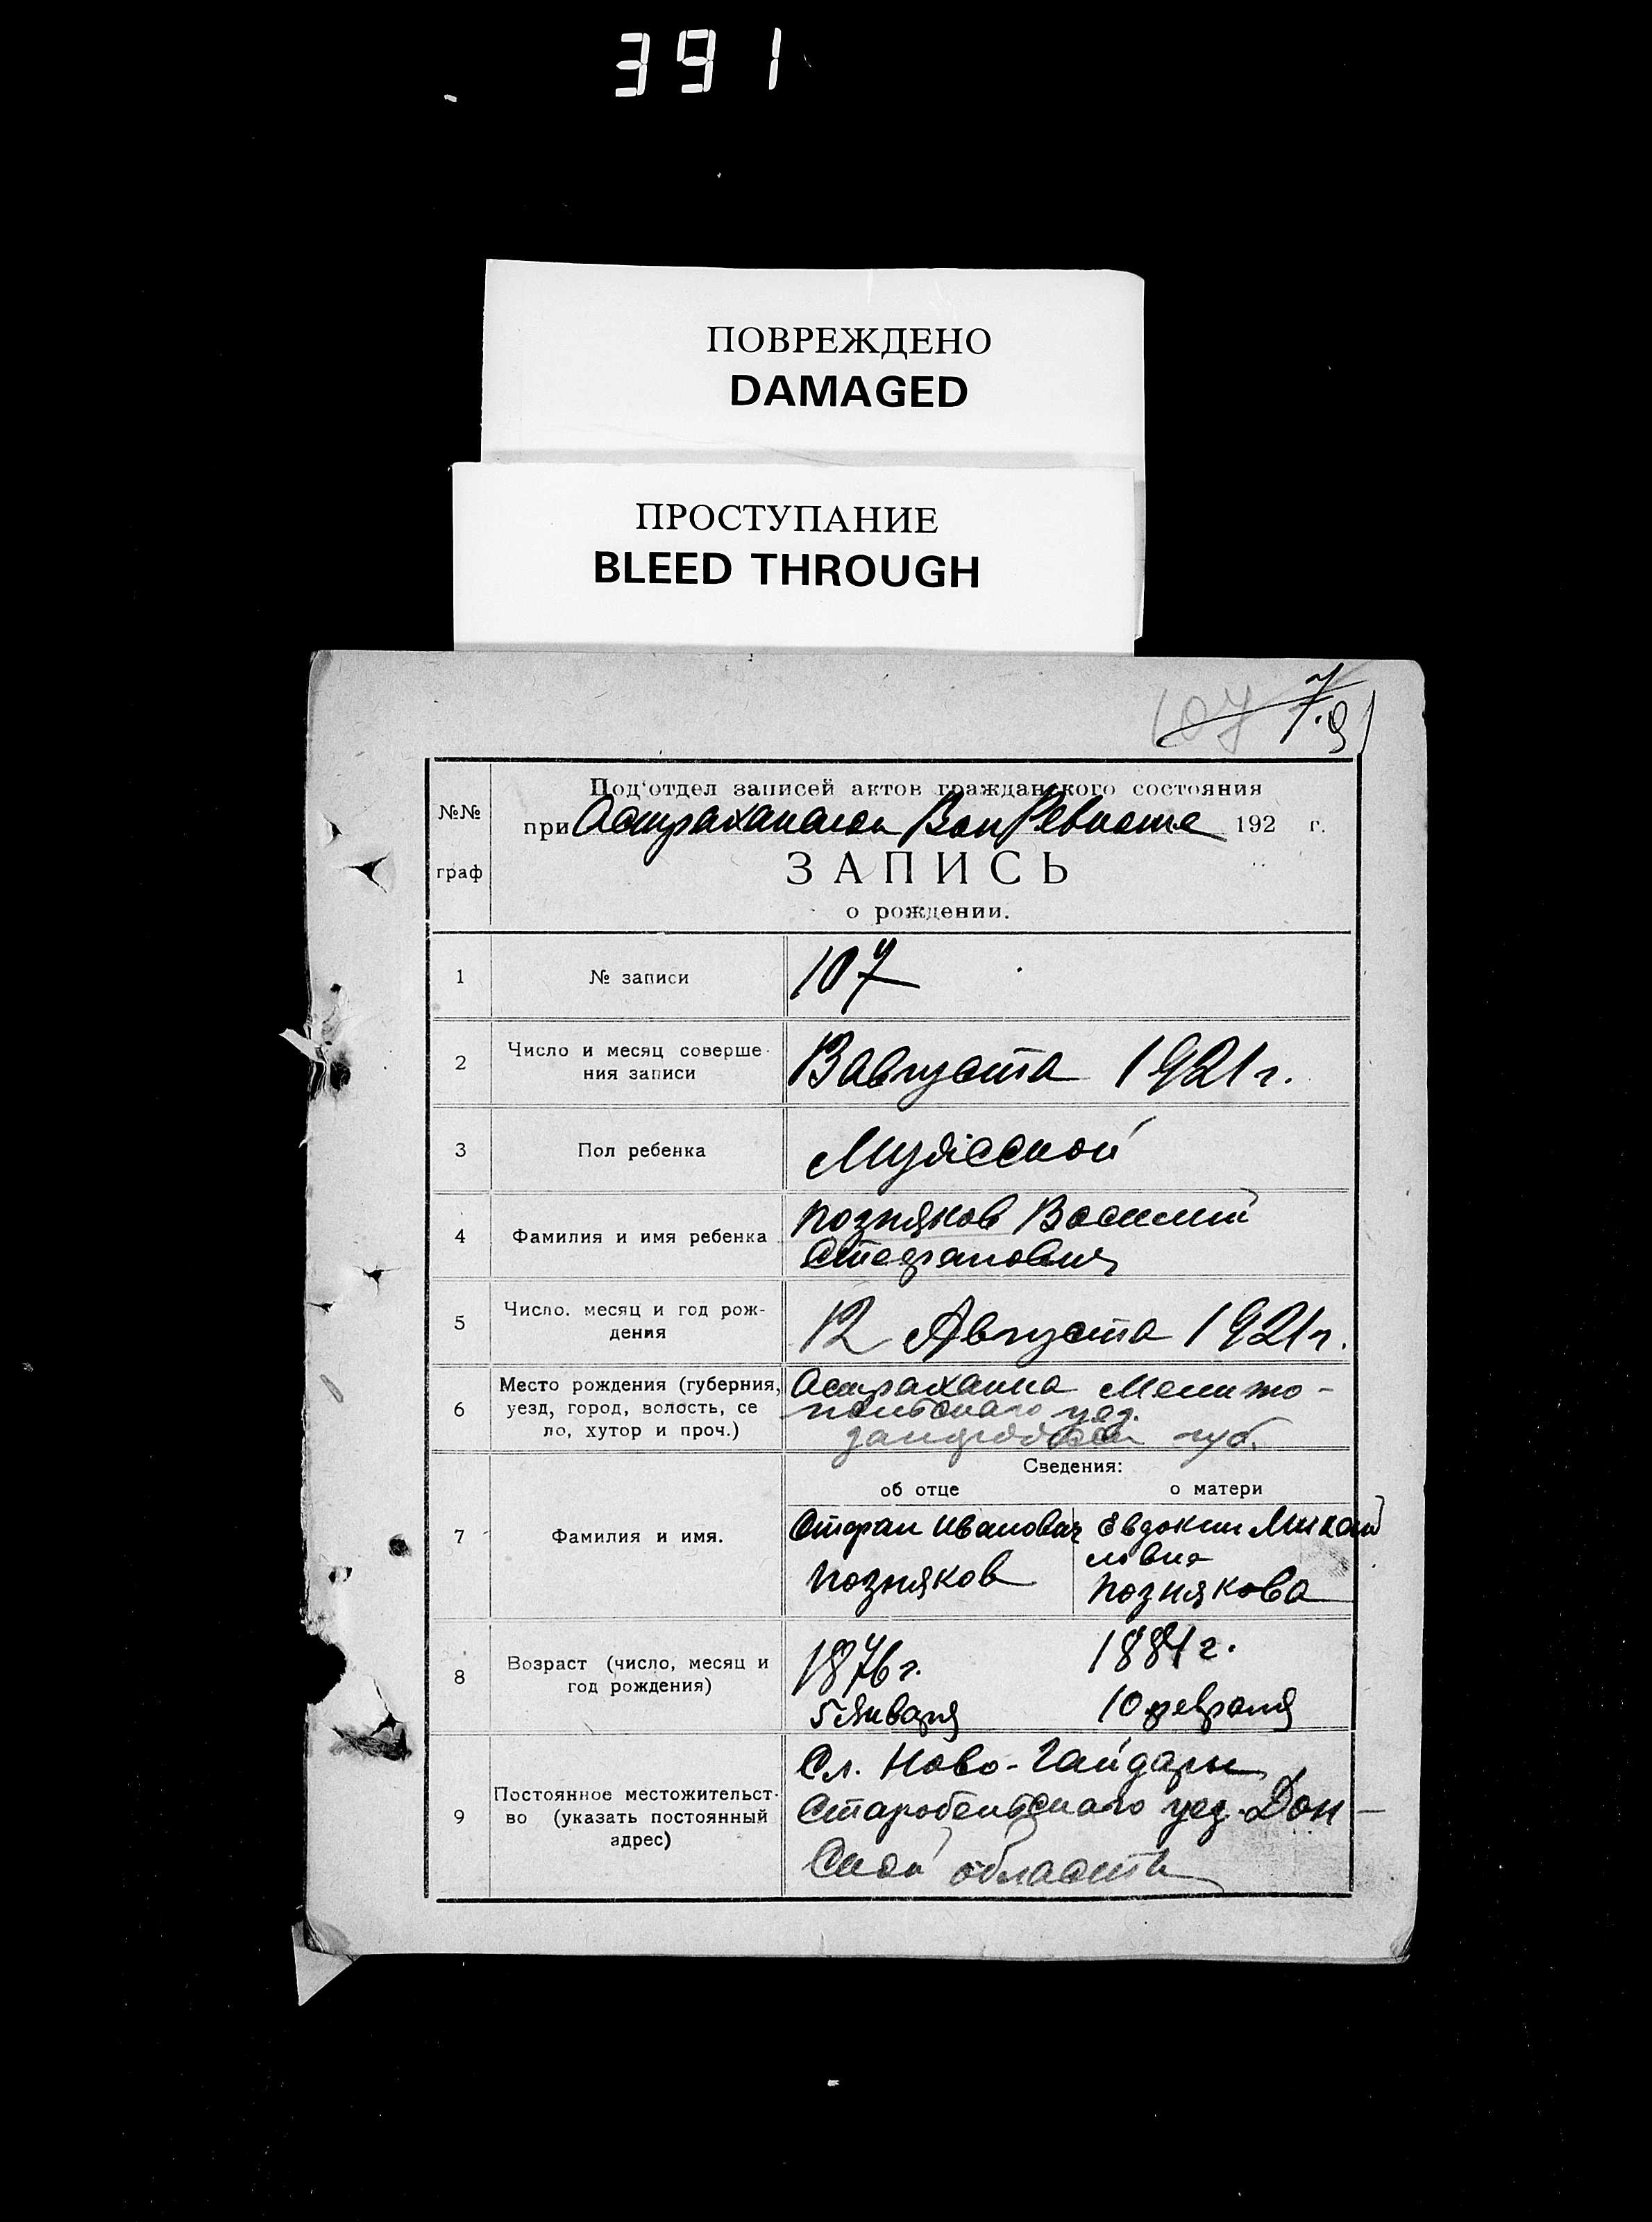 391
ПОВРЕЖДЕНО
DAMAGED
ПРОСТУПАНИЕ
BLEED THROUGH
107
№№
граф
Под'отдел записей актов гражданского состояния
при Астраханском Вол Ревкоме 192 г.
ЗАПИСЬ
о рождении.
1 № записи 107
2 Число и месяц соверше-
ния записи
13 августа 1921 г.
3 Пол ребенка Мужеской
4 Фамилия и имя ребенка
Позняков Василий
Стефанович
5 Число. месяц и год рож-
дения
12 Августа 1921 г.
6 Место рождения (губерния,
уезд, город, волость, се
ло, хутор и проч.)
Астраханка Мелито-
польскаго уез.
губ.
Сведения:
об отце о матери
7 Фамилия и имя.
Стефан Иванович
Позняков
Евдокия Михай
ловна
Познякова
8 Возраст (число, месяц и
год рождения)
1876 г.
5 Января
1884 г.
10 февраля
9 Постоянное местожительст-
во (указать постоянный
адрес)
Сл. Ново-Гайдары
Старобельскаго уез. Дон-
Ской области